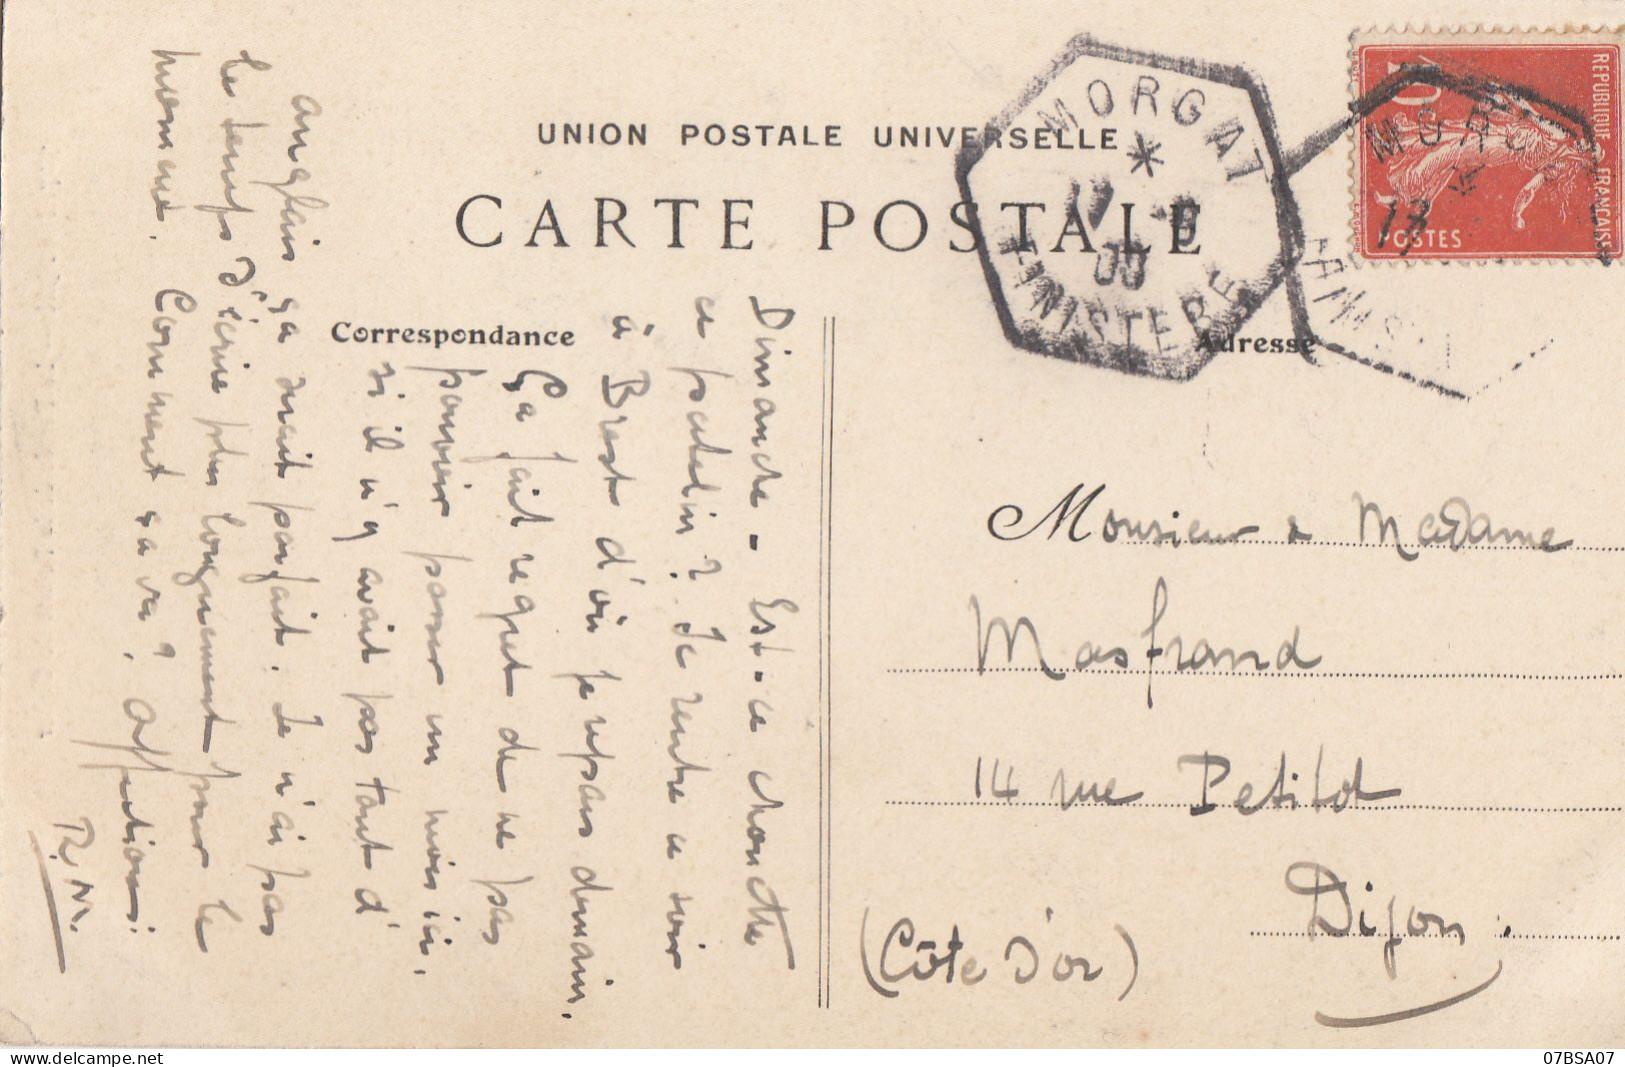 UNION POSTALE UNIVERSELLE
CARTE POSTALE
Correspondance
Adresse
MORGAT
FINISTERE
MORG
REPUBLIQUE FRANÇAISE
POSTES
10
Dimanche - Est-ce chouette
ce patelin? Je rentre ce soir
à Brest d'où je repars demain.
Ça fait regret de ne pas
pouvoir passer un mois ici,
si il n'y avait pas tant d'
anglais ça serait parfait. Je n'ai pas
le temps d'écrire plus longuement pour le
moment. Comment ça va? Affections.
Monsieur & Madame
Masfrand
14 rue Petitot
Dijon.
(Côte d'or)
delcampe.net
07BSA07